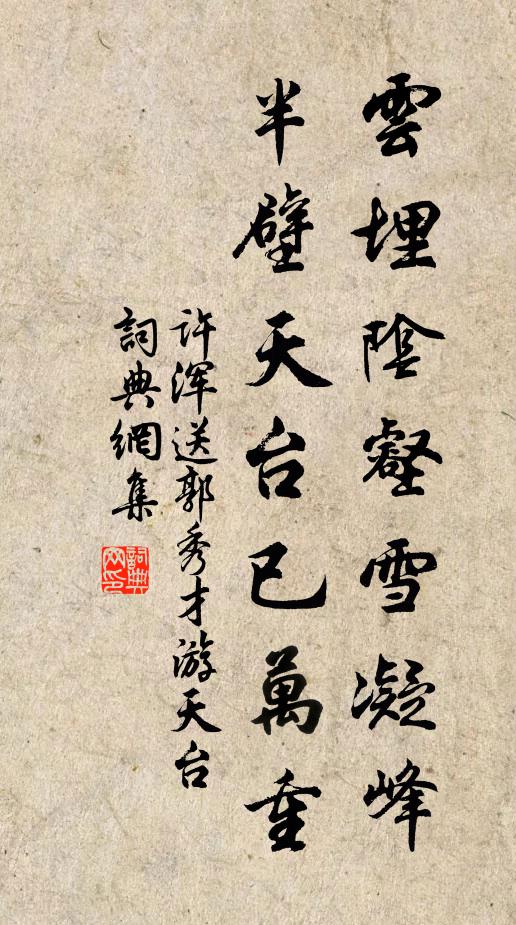 雲埋陰壑雪凝峰
半壁天台已萬重
许渾送郭秀才游天台
詞典網集
詞典網印